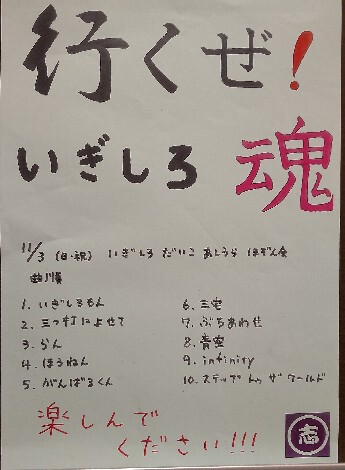 行くぜ!
いぎしろ 魂
11/3 (日・祝) いぎしろ だいこ あしうら ほぞん会
曲順
1. いぎしろもん
2. 三つ打によせて
3. らん
4. ほうねん
5. がんばるくん
6. 三宅
7. ぶちあわせ
8. 青空
9. infinity
10. ステップ トゥ ザ ワールド
楽しんで
ください!!!
志